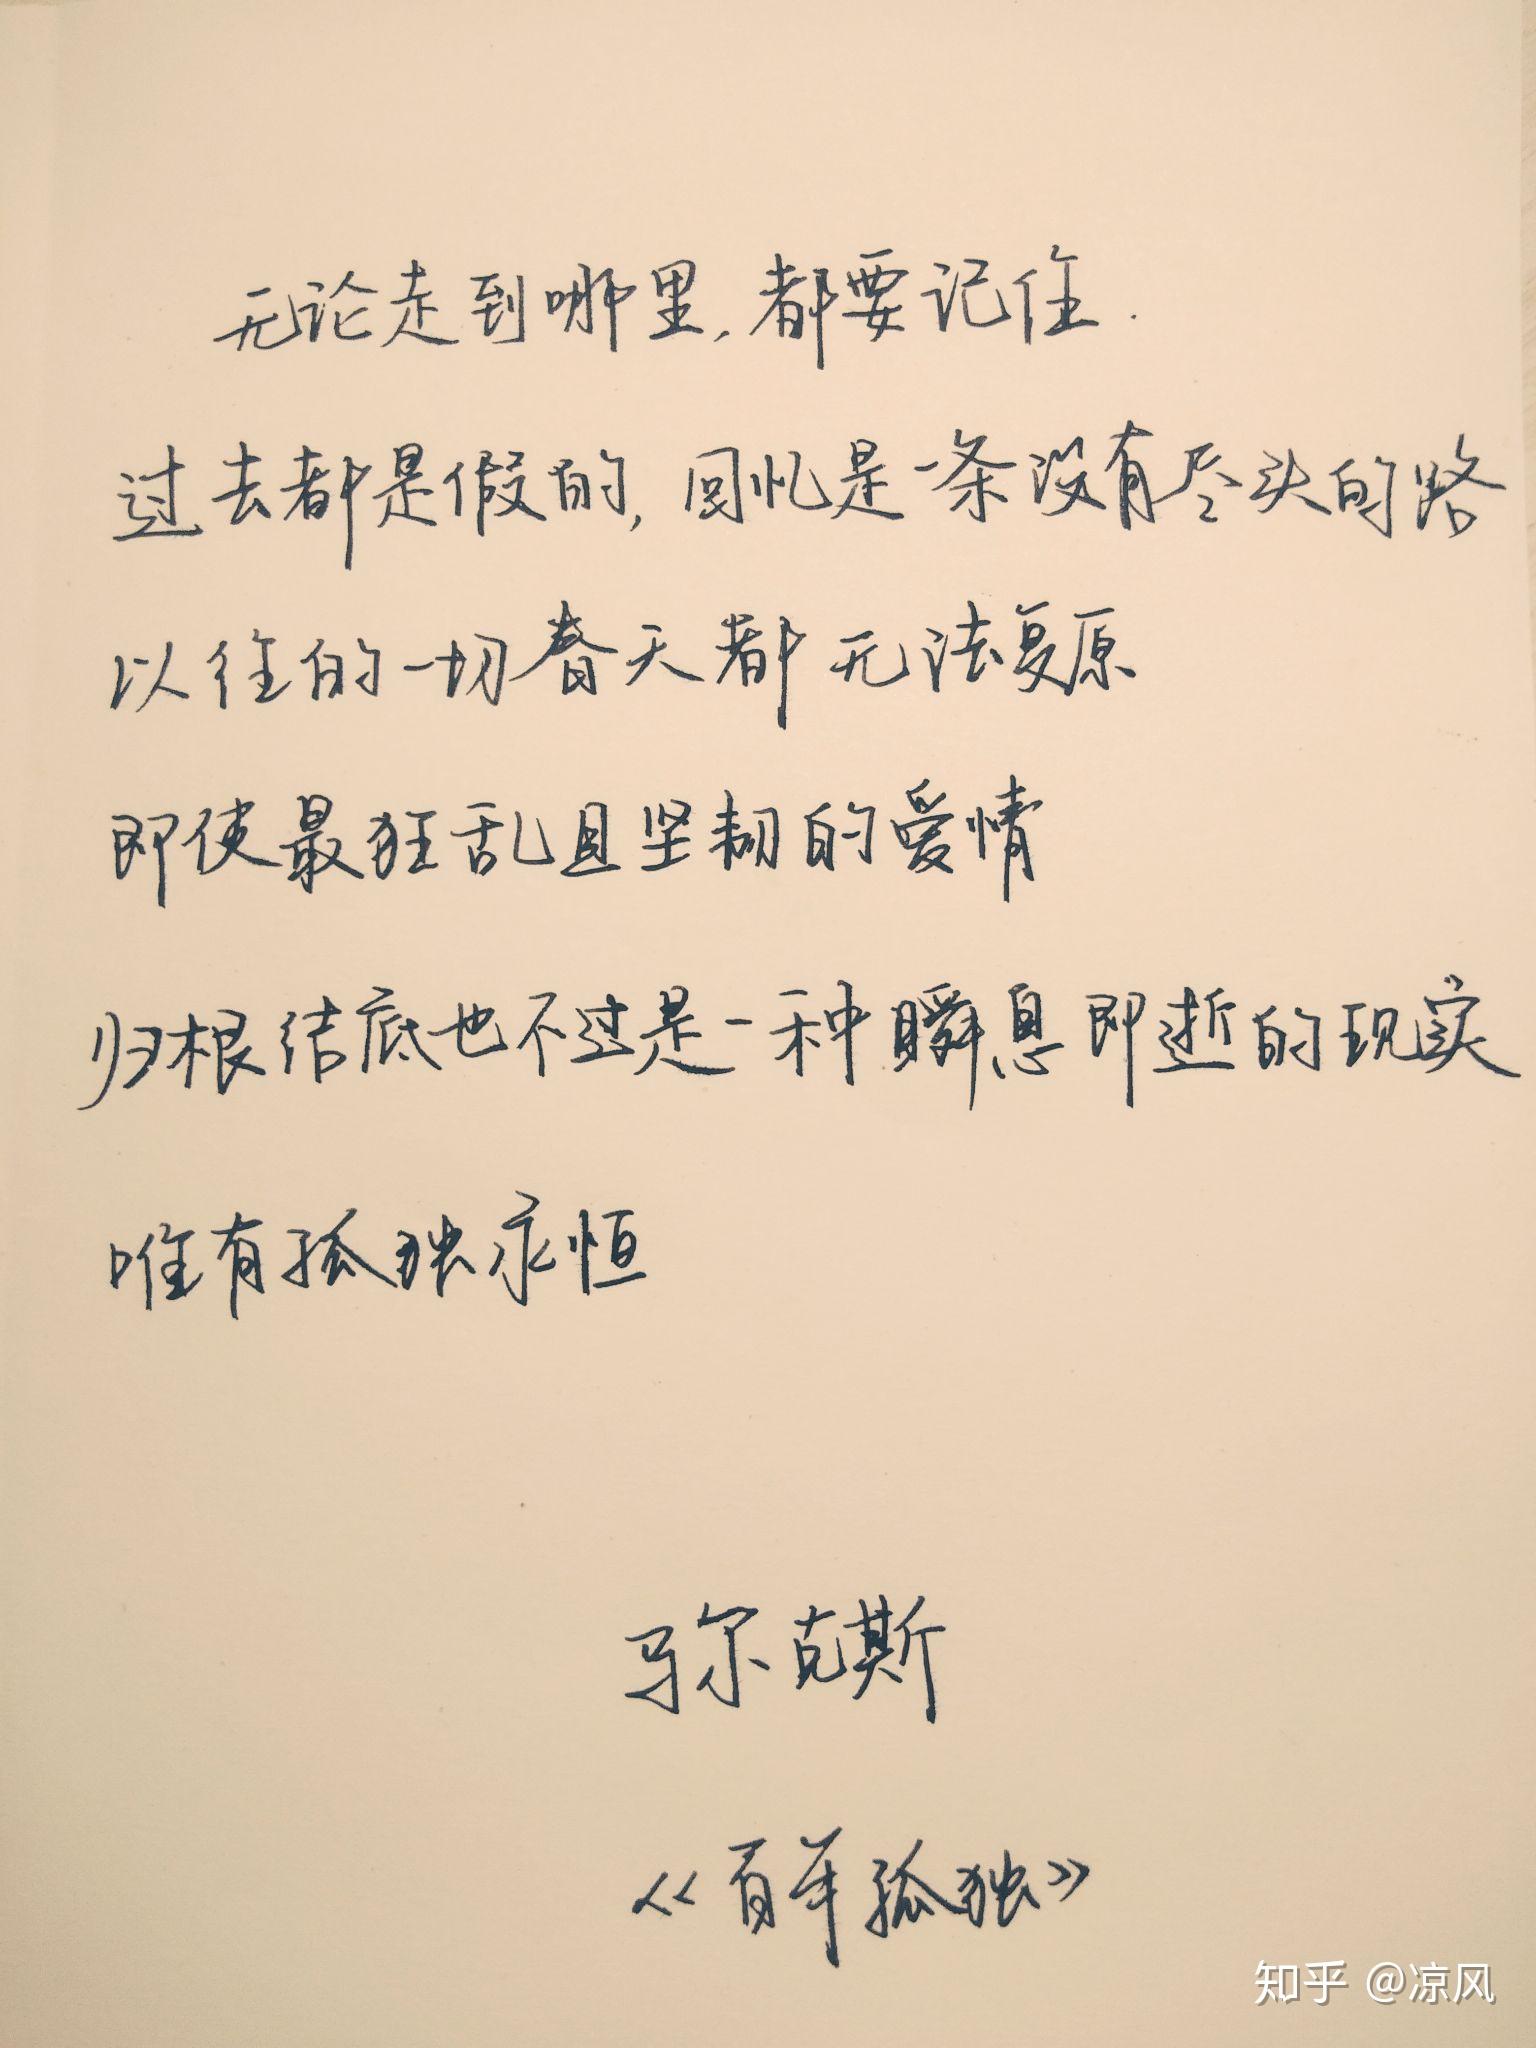 无论走到哪里，都要记住.
过去都是假的，回忆是一条没有尽头的路
以往的一切春天都无法复原
即使最狂乱且坚韧的爱情
归根结底也不过是一种瞬息即逝的现实
唯有孤独永恒
马尔克斯
《百年孤独》
知乎 @凉风